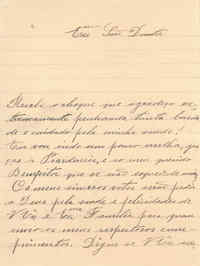 Recebi o cheque que agradeço ex-
tremamente penhorada, tanta bonda-
de e cuidado pela minha saude!
Eu vou indo um pouco melhor, gra-
ças à Providencia, e ao meu querido
Bemfeitor que se não esquece de mim
Os meus sinceros votos serão pedir
a Deus pela saude e felicidades de
V. Ex.ª e Ex.ma Familia para quem
envio os meus respeitosos cum-
primentos. Digne-se V. Ex.ª